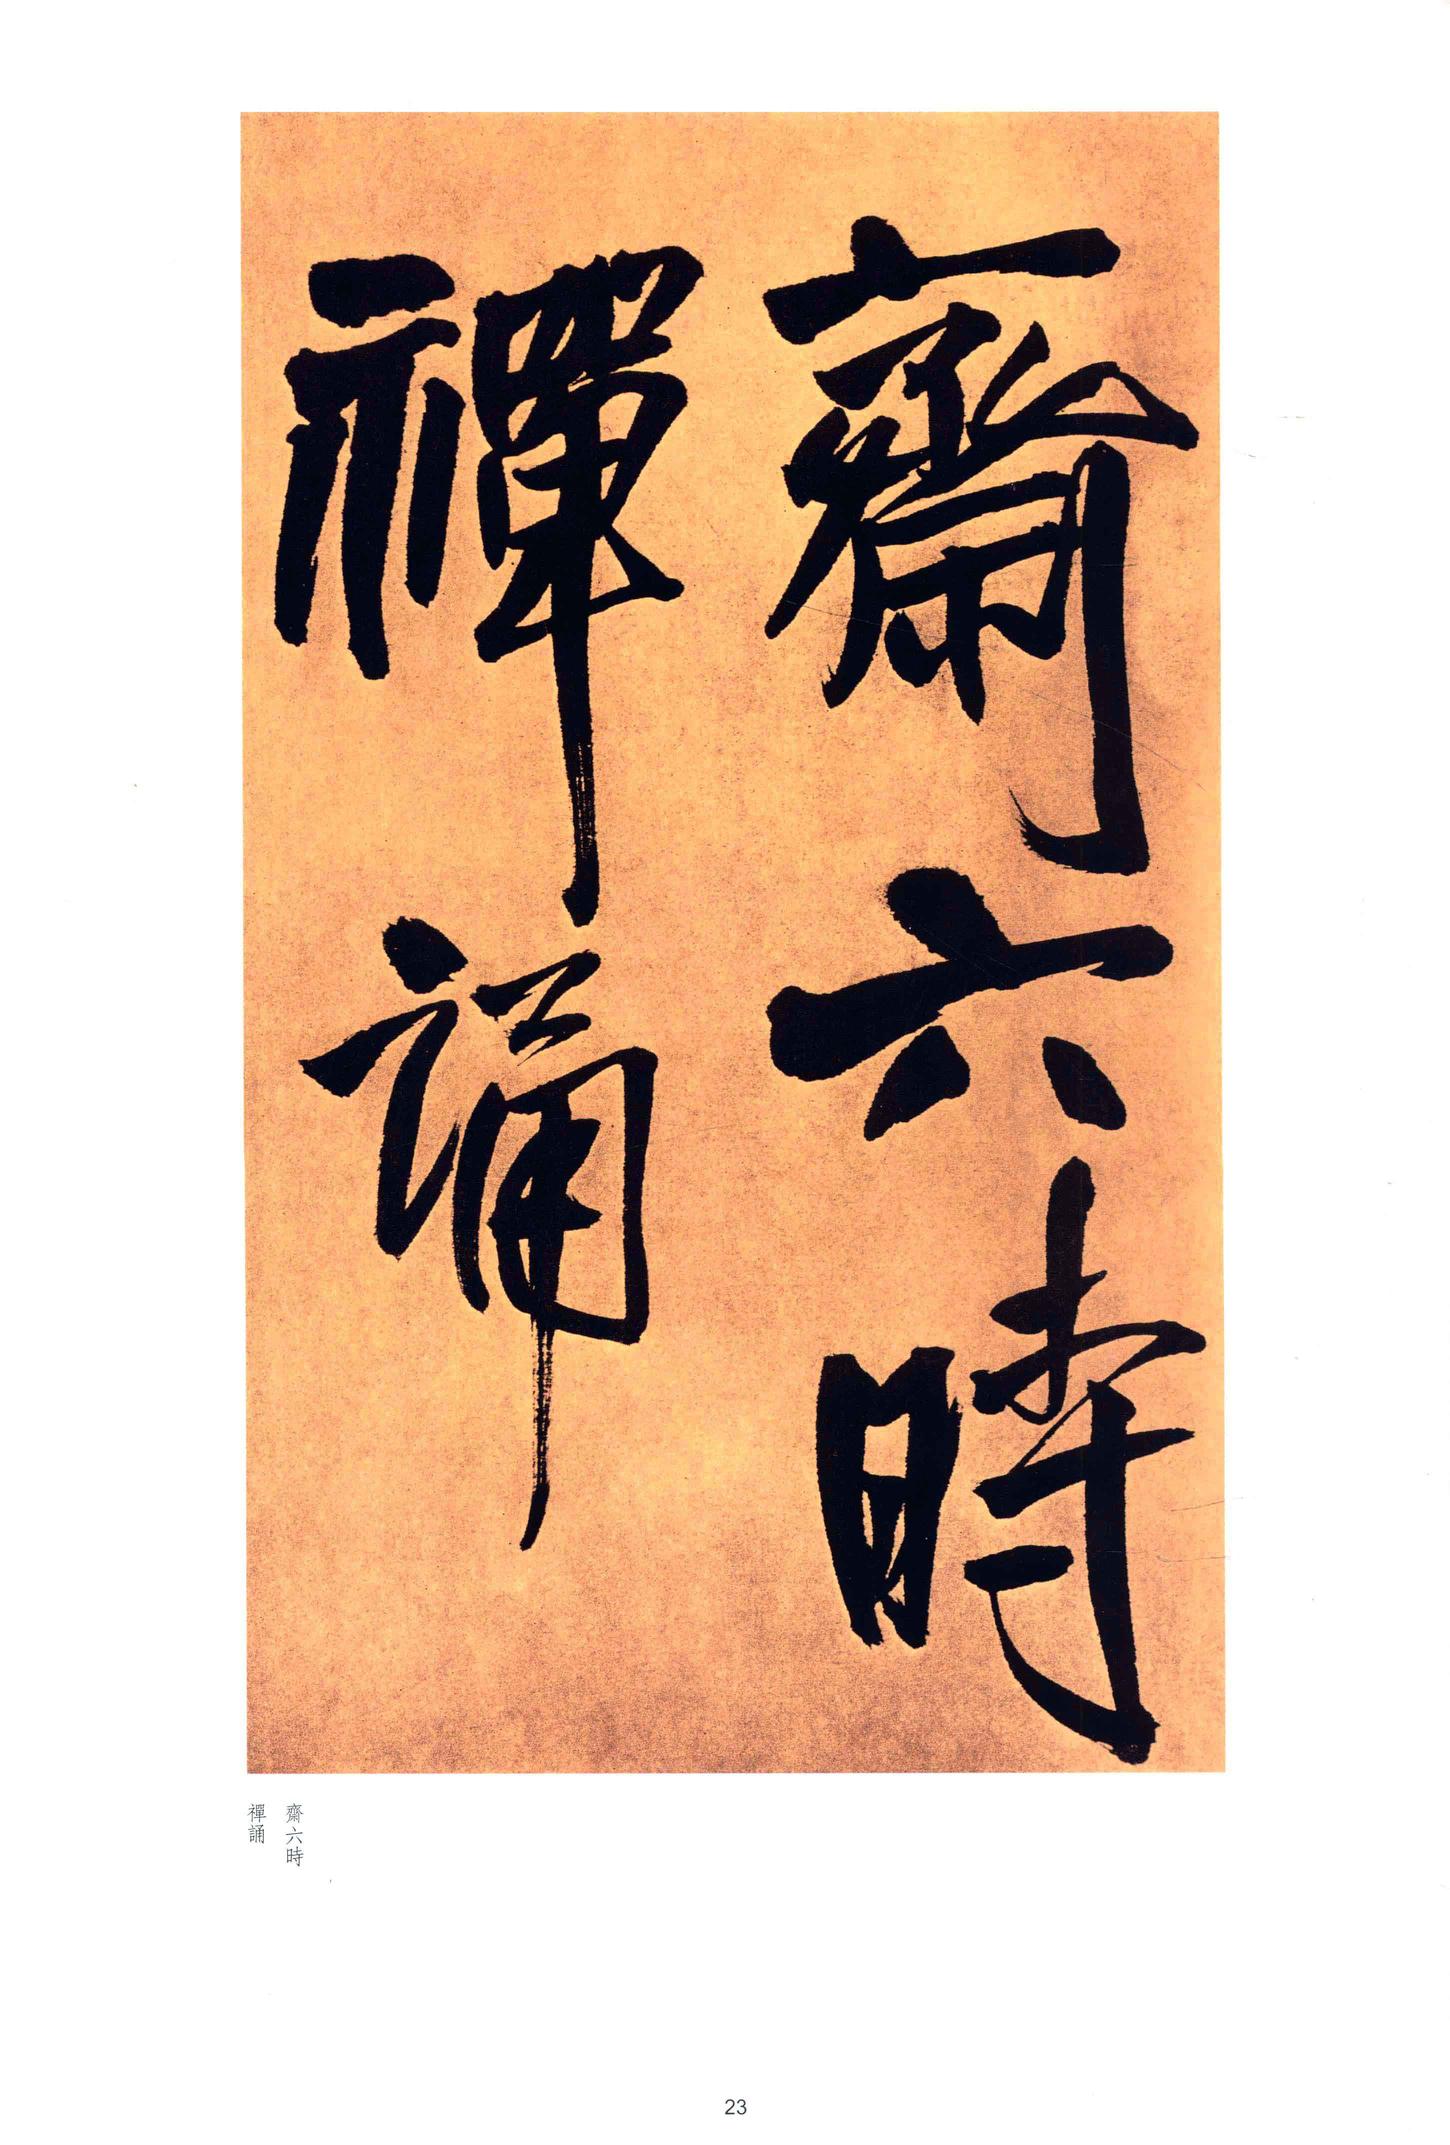 齋六時
禪誦
齋六時
禪誦
23